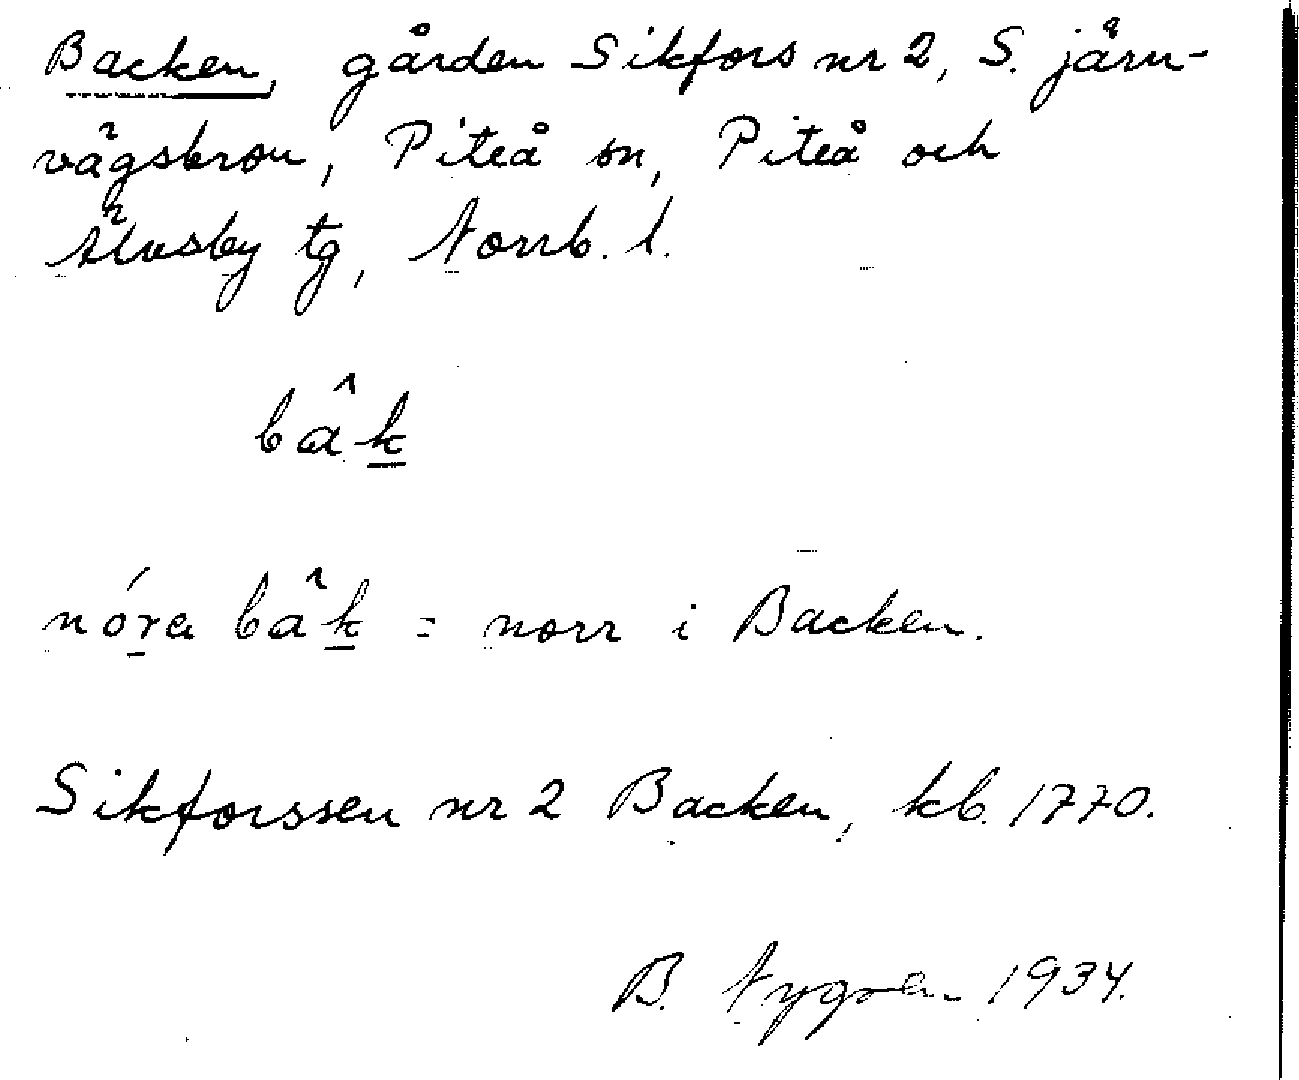 Backen, gården Sikfors nr 2, S. järn-
vägsbron, Piteå sn, Piteå och
Älvsby tg, Norrb. l.
bâk̲
nór̲a bâk̲ = norr i Backen.
Sikforssen nr 2 Backen, kb. 1770.
B. Nygren 1934.